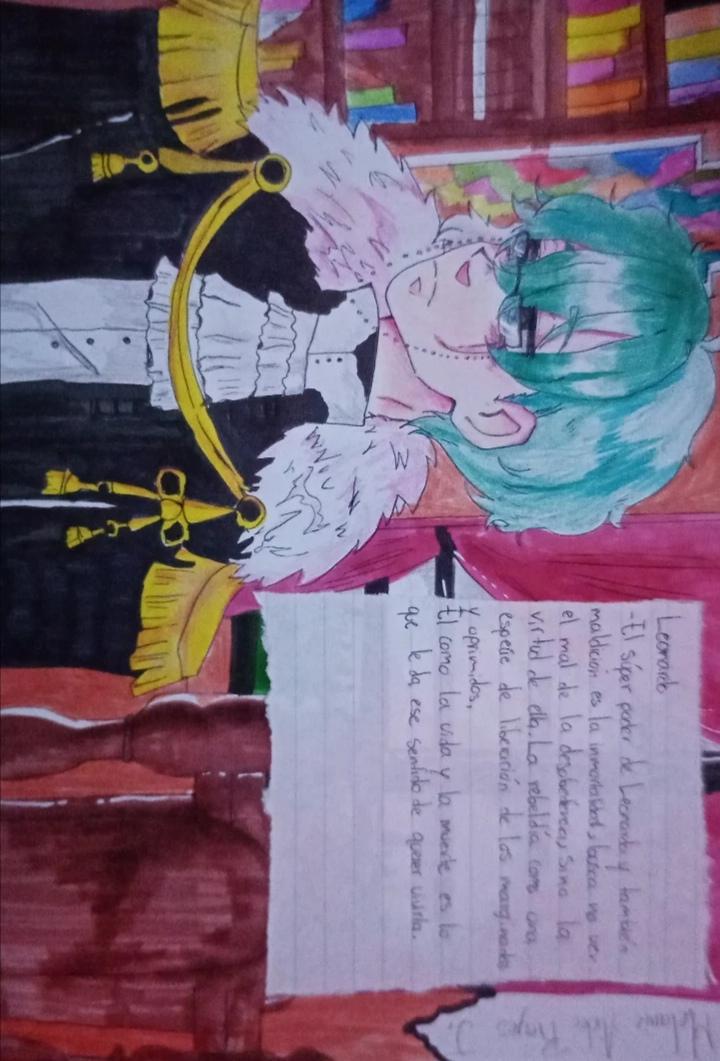 Leonardo
-El súper poder de Leonardo y también
maldición es la inmortalidad, busca no ver
el mal de la desobediencia, sino la
virtud de ella. La rebeldía como una
especie de liberación de los marginados
y oprimidos,
El como la vida y la muerte es lo
que le da ese sentido de querer vivirla.
Melanie Reyes J.